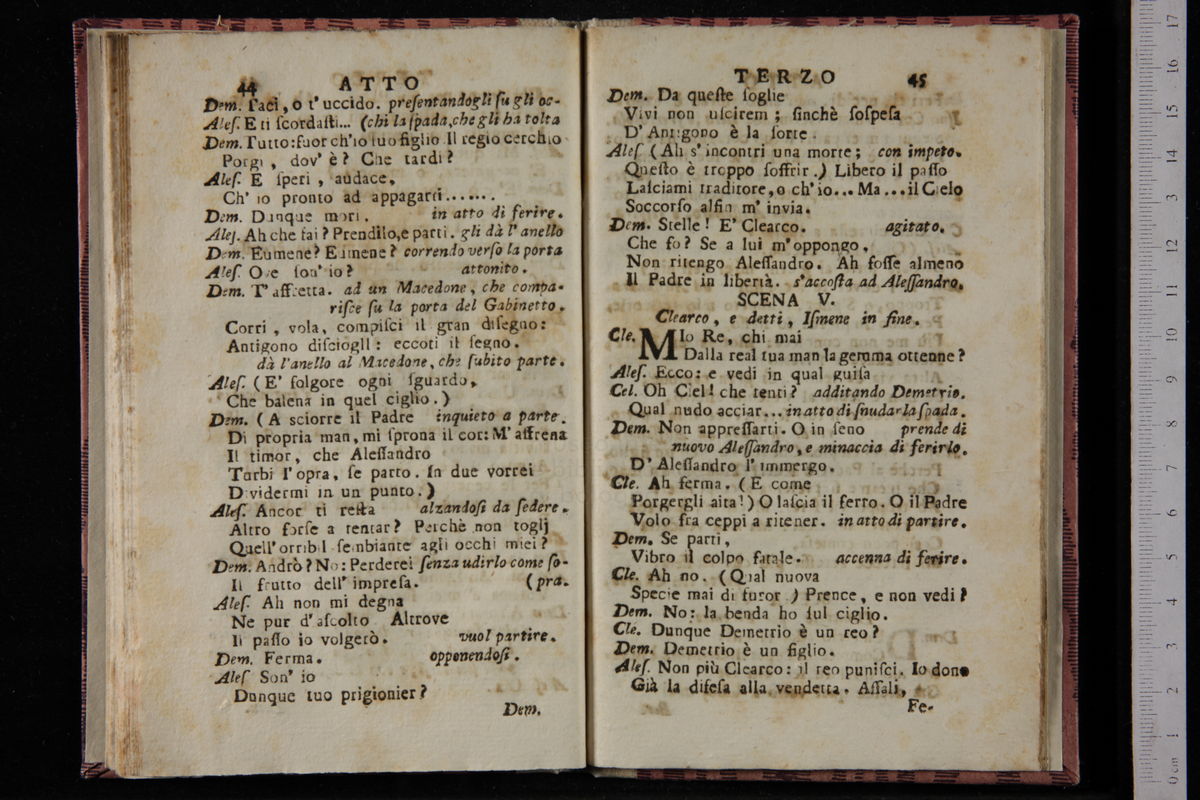 44 ATTO
Dem. Taci, o t' uccido. preſentandogli ſu gli oc-
Aleſ. E ti ſcordaſti... (chi la ſpada, che gli ha tolta
Dem. Tutto: fuor ch'io tuo figlio Il regio cerchio
Porgi, dov' è? Che tardi?
Aleſ. E ſperi, audace,
Ch' io pronto ad appagarti.......
Dem. Dunque mori. in atto di ferire.
Aleſ. Ah che fai? Prendilo, e parti. gli dà l' anello
Dem. Eumene? Eumene? correndo verſo la porta
Aleſ. Ove ſon' io? attonito.
Dem. T' affretta. ad un Macedone, che compa-
riſce ſu la porta del Gabinetto.
Corri, vola, compiſci il gran diſegno:
Antigono diſciogli: eccoti il ſegno.
dà l'anello al Macedone, che ſubito parte.
Aleſ. (E' folgore ogni ſguardo,
Che balena in quel ciglio.)
Dem. (A sciorre il Padre inquieto a parte.
Di propria man, mi ſprona il cor: M' affrena
Il timor, che Aleſſandro
Turbi l'opra, ſe parto. In due vorrei
Dividermi in un punto.)
Aleſ. Ancor ti reſta alzandoſi da ſedere.
Altro forſe a tentar? Perchè non toglj
Quell' orribil ſembiante agli occhi miei?
Dem. Andrò? No: Perderei ſenza udirlo come ſo-
Il frutto dell' impreſa. (pra.
Aleſ. Ah non mi degna
Ne pur d'aſcolto Altrove
Il paſſo io volgerò. vuol partire.
Dem. Ferma. opponendoſi.
Aleſ Son' io
Dunque tuo prigionier?
Dem.
TERZO 45
Dem. Da queſte ſoglie
Vivi non uſcirem; ſinchè ſoſpeſa
D' Antigono è la ſorte.
Aleſ (Ah s' incontri una morte; con impeto.
Queſto è troppo ſoffrir.) Libero il paſſo
Laſciami traditore, o ch' io... Ma... il Cielo
Soccorſo alfin m' invia.
Dem. Stelle! E' Clearco. agitato.
Che fo? Se a lui m' oppongo,
Non ritengo Aleſſandro. Ah foſſe almeno
Il Padre in libertà. s'accoſta ad Aleſſandro.
SCENA V.
Clearco, e detti, Iſmene in fine.
Cle. MIo Re, chi mai
Dalla real tua man la gemma ottenne?
Aleſ. Ecco: e vedi in qual guiſa
Cel. Oh Ciel! che tenti? additando Demetrio.
Qual nudo acciar... in atto di ſnudar la ſpada.
Dem. Non appreſſarti. O in ſeno prende di
nuovo Aleſſandro, e minaccia di ferirlo.
D' Aleſſandro l' immergo.
Cle. Ah ferma. (E come
Porgergli aita!) O laſcia il ferro. O il Padre
Volo fra ceppi a ritener. in atto di partire.
Dem. Se parti,
Vibro il colpo fatale. accenna di ferire.
Cle. Ah no. (Qual nuova
Specie mai di furor.) Prence, e non vedi?
Dem. No: la benda ho ſul ciglio.
Cle. Dunque Demetrio è un reo?
Dem. Demetrio è un figlio.
Aleſ. Non più Clearco: il reo puniſci. Io dono
Già la difeſa alla vendetta. Aſſali,
Fe-